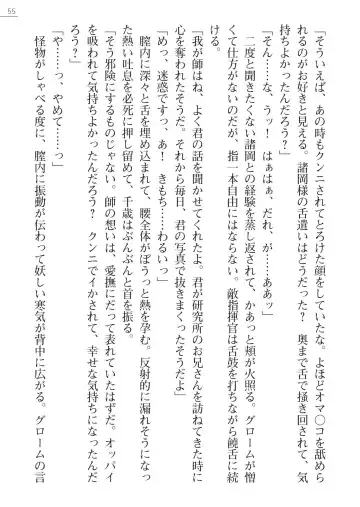 55
「そういえば、あの時もクンニされてとろけた顔をしていたな。よほどオマ〇コを舐めら
れるのがお好きと見える。諸岡様の舌遣いはどうだった？　奥まで舌で掻き回されて、気
持ちよかったんだろう？」
「そん……な、うッ！　はぁはぁ、だれ、が……ああッ」
　二度と聞きたくない諸岡との経験を蒸し返されて、かあっと頬が火照る。グロームが憎
くて仕方がないのだが、指一本自由にはならない。敵指揮官は舌鼓を打ちながら饒舌に続
ける。
「我が師はね、よく君の話を聞かせてくれたよ。君が研究所のお兄さんを訪ねてきた時に
心を奪われたそうだ。それから毎日、君の写真で抜きまくったそうだよ」
「めっ、迷惑ですっ、あ！　きもち……わるいっ」
　膣内に深々と舌を埋め込まれて、腰全体がぼうっと熱を孕む。反射的に漏れそうになっ
た熱い吐息を必死に押し留めて、千歳はぶんぶんと首を振る。
「そう邪険にするもんじゃない。師の想いは、愛撫にだって表れていたはずだ。オッパイ
を吸われて気持ちよかったんだろう？　クンニでイかされて、幸せな気持ちになったんだ
ろう？」
「や……っ、やめて……っ」
　怪物がしゃべる度に、膣内に振動が伝わって妖しい寒気が背中に広がる。グロームの言